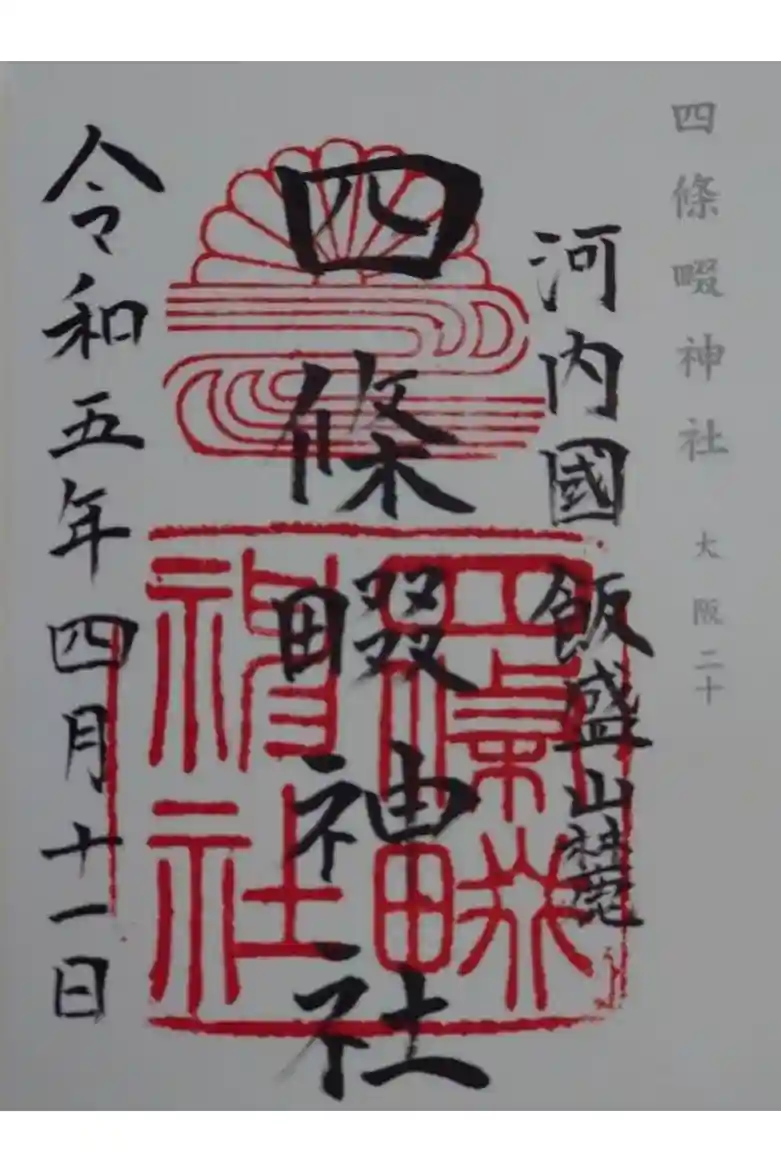 四條畷神社 大阪二十
河内國 飯盛山麓
四條畷神社
四條畷神社
令和五年四月十一日